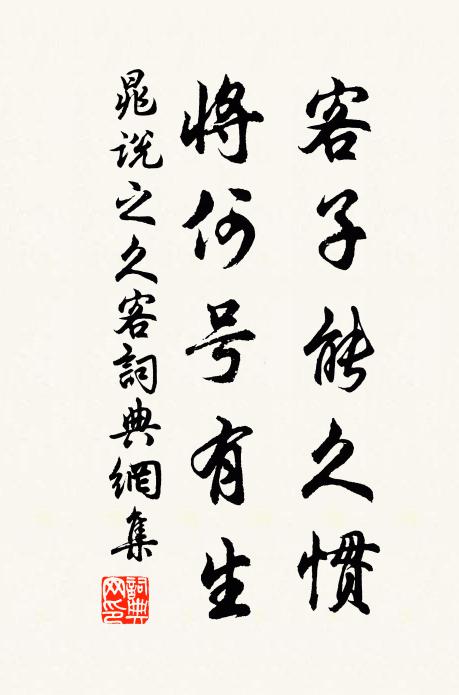 客子能久慣
將何号有生
晁說之久客詞典網集
詞典网印